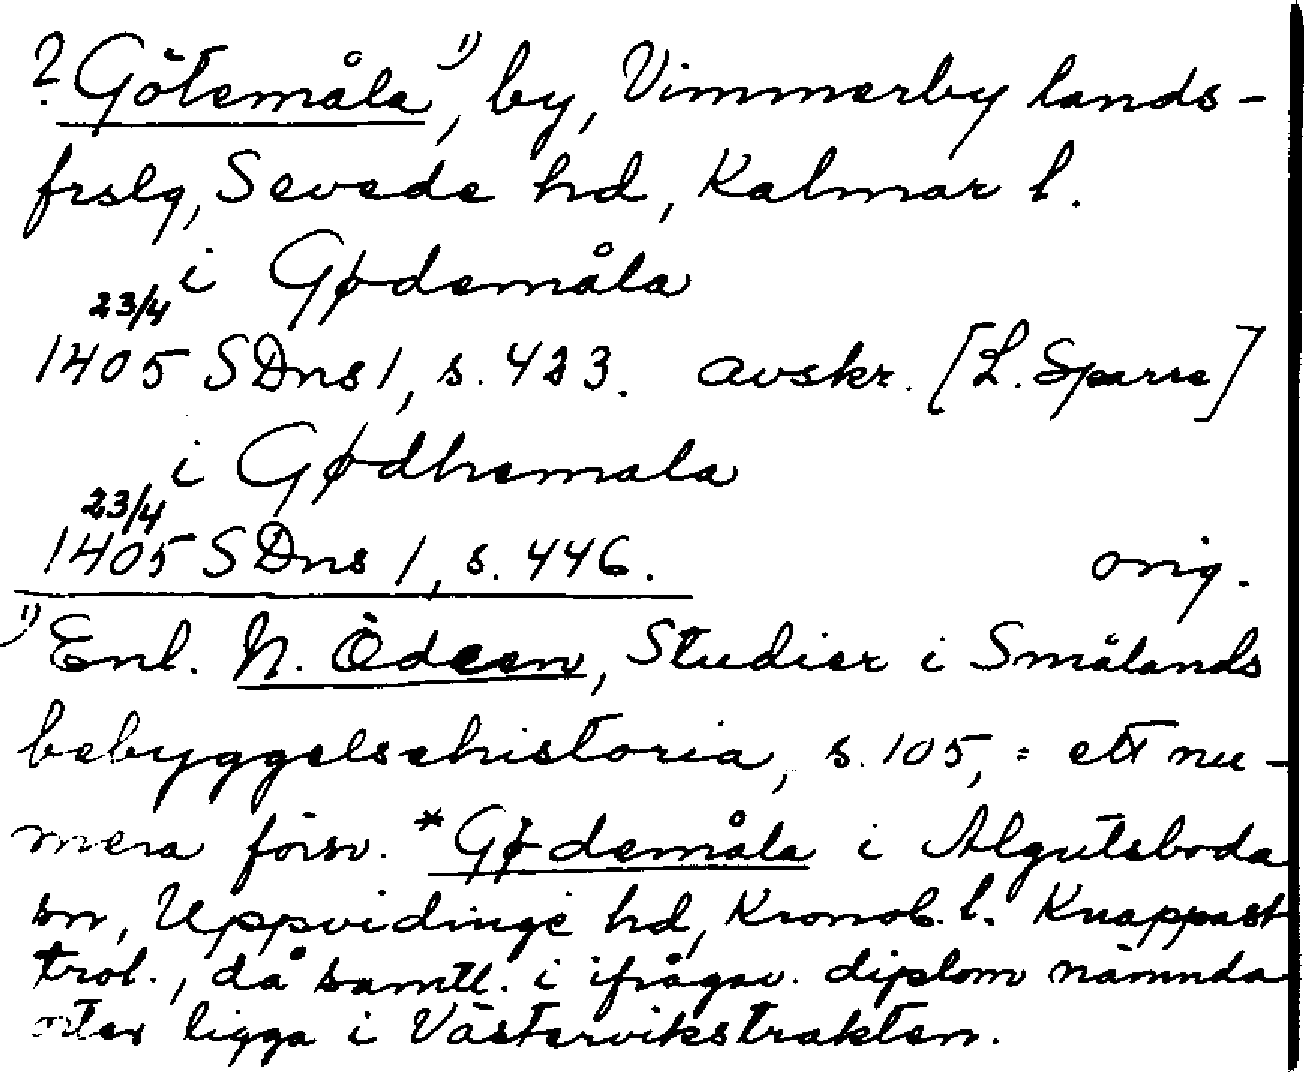 ? Götemåla ¹⁾, by, Vimmerby lands-
frslg, Sevede hd, Kalmar l.
i Gødemåla
23/4
1405 SDns 1, s. 423. avskr. [L. Sparre]
i Gødhemala
23/4
1405 SDns 1, s. 446. orig.
¹⁾ Enl. N. Ödeen, Studier i Smålands
bebyggelsehistoria, s. 105, = ett nu-
mera försv. *Gødemåla i Algutsboda
sn, Uppvidinge hd, Kronob. l. Knappast
trol., då samtl. i ifrågav. diplom nämnda
orter ligga i Västervikstrakten.